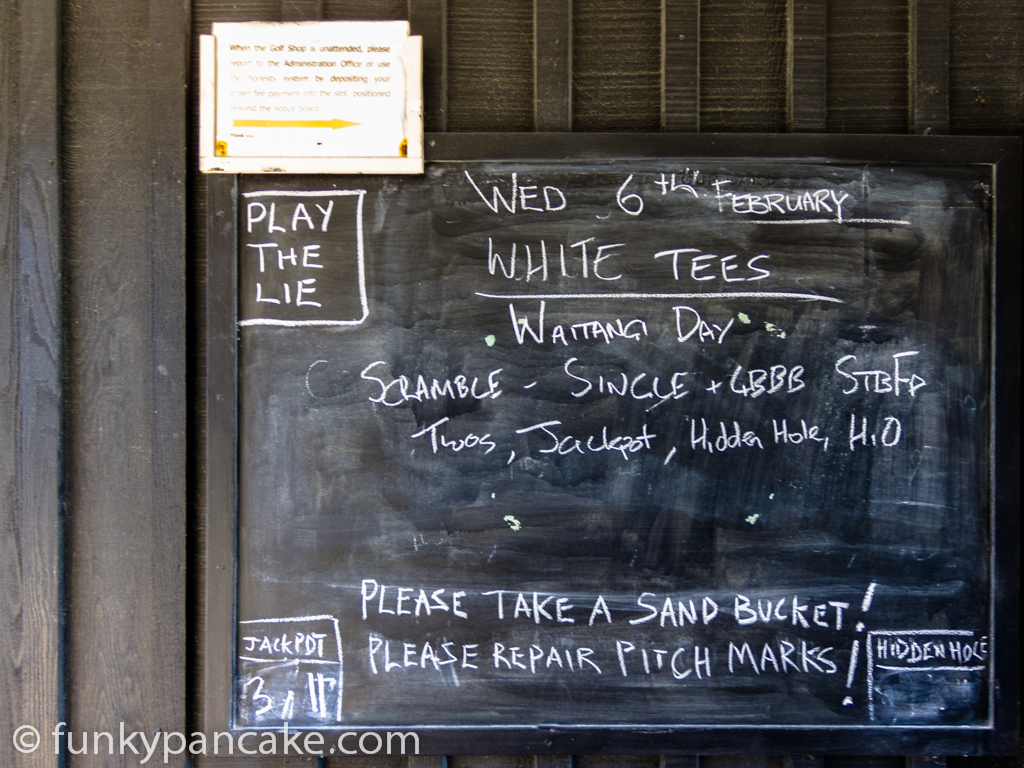 When the Golf Shop is unattended, please
report to the Administration Office or use
the honesty system by depositing your
green fee payment into the slot, positioned
beyond the notice board.
Thank you
PLAY
THE
LIE
WED 6th FEBRUARY
WHITE TEES
WAITANGI DAY
SCRAMBLE - SINGLE + 4BBB STBFD
Twos, Jackpot, Hidden Hole, HiO
PLEASE TAKE A SAND BUCKET!
PLEASE REPAIR PITCH MARKS!
JACKPOT
HIDDEN HOLE
© funkypancake.com